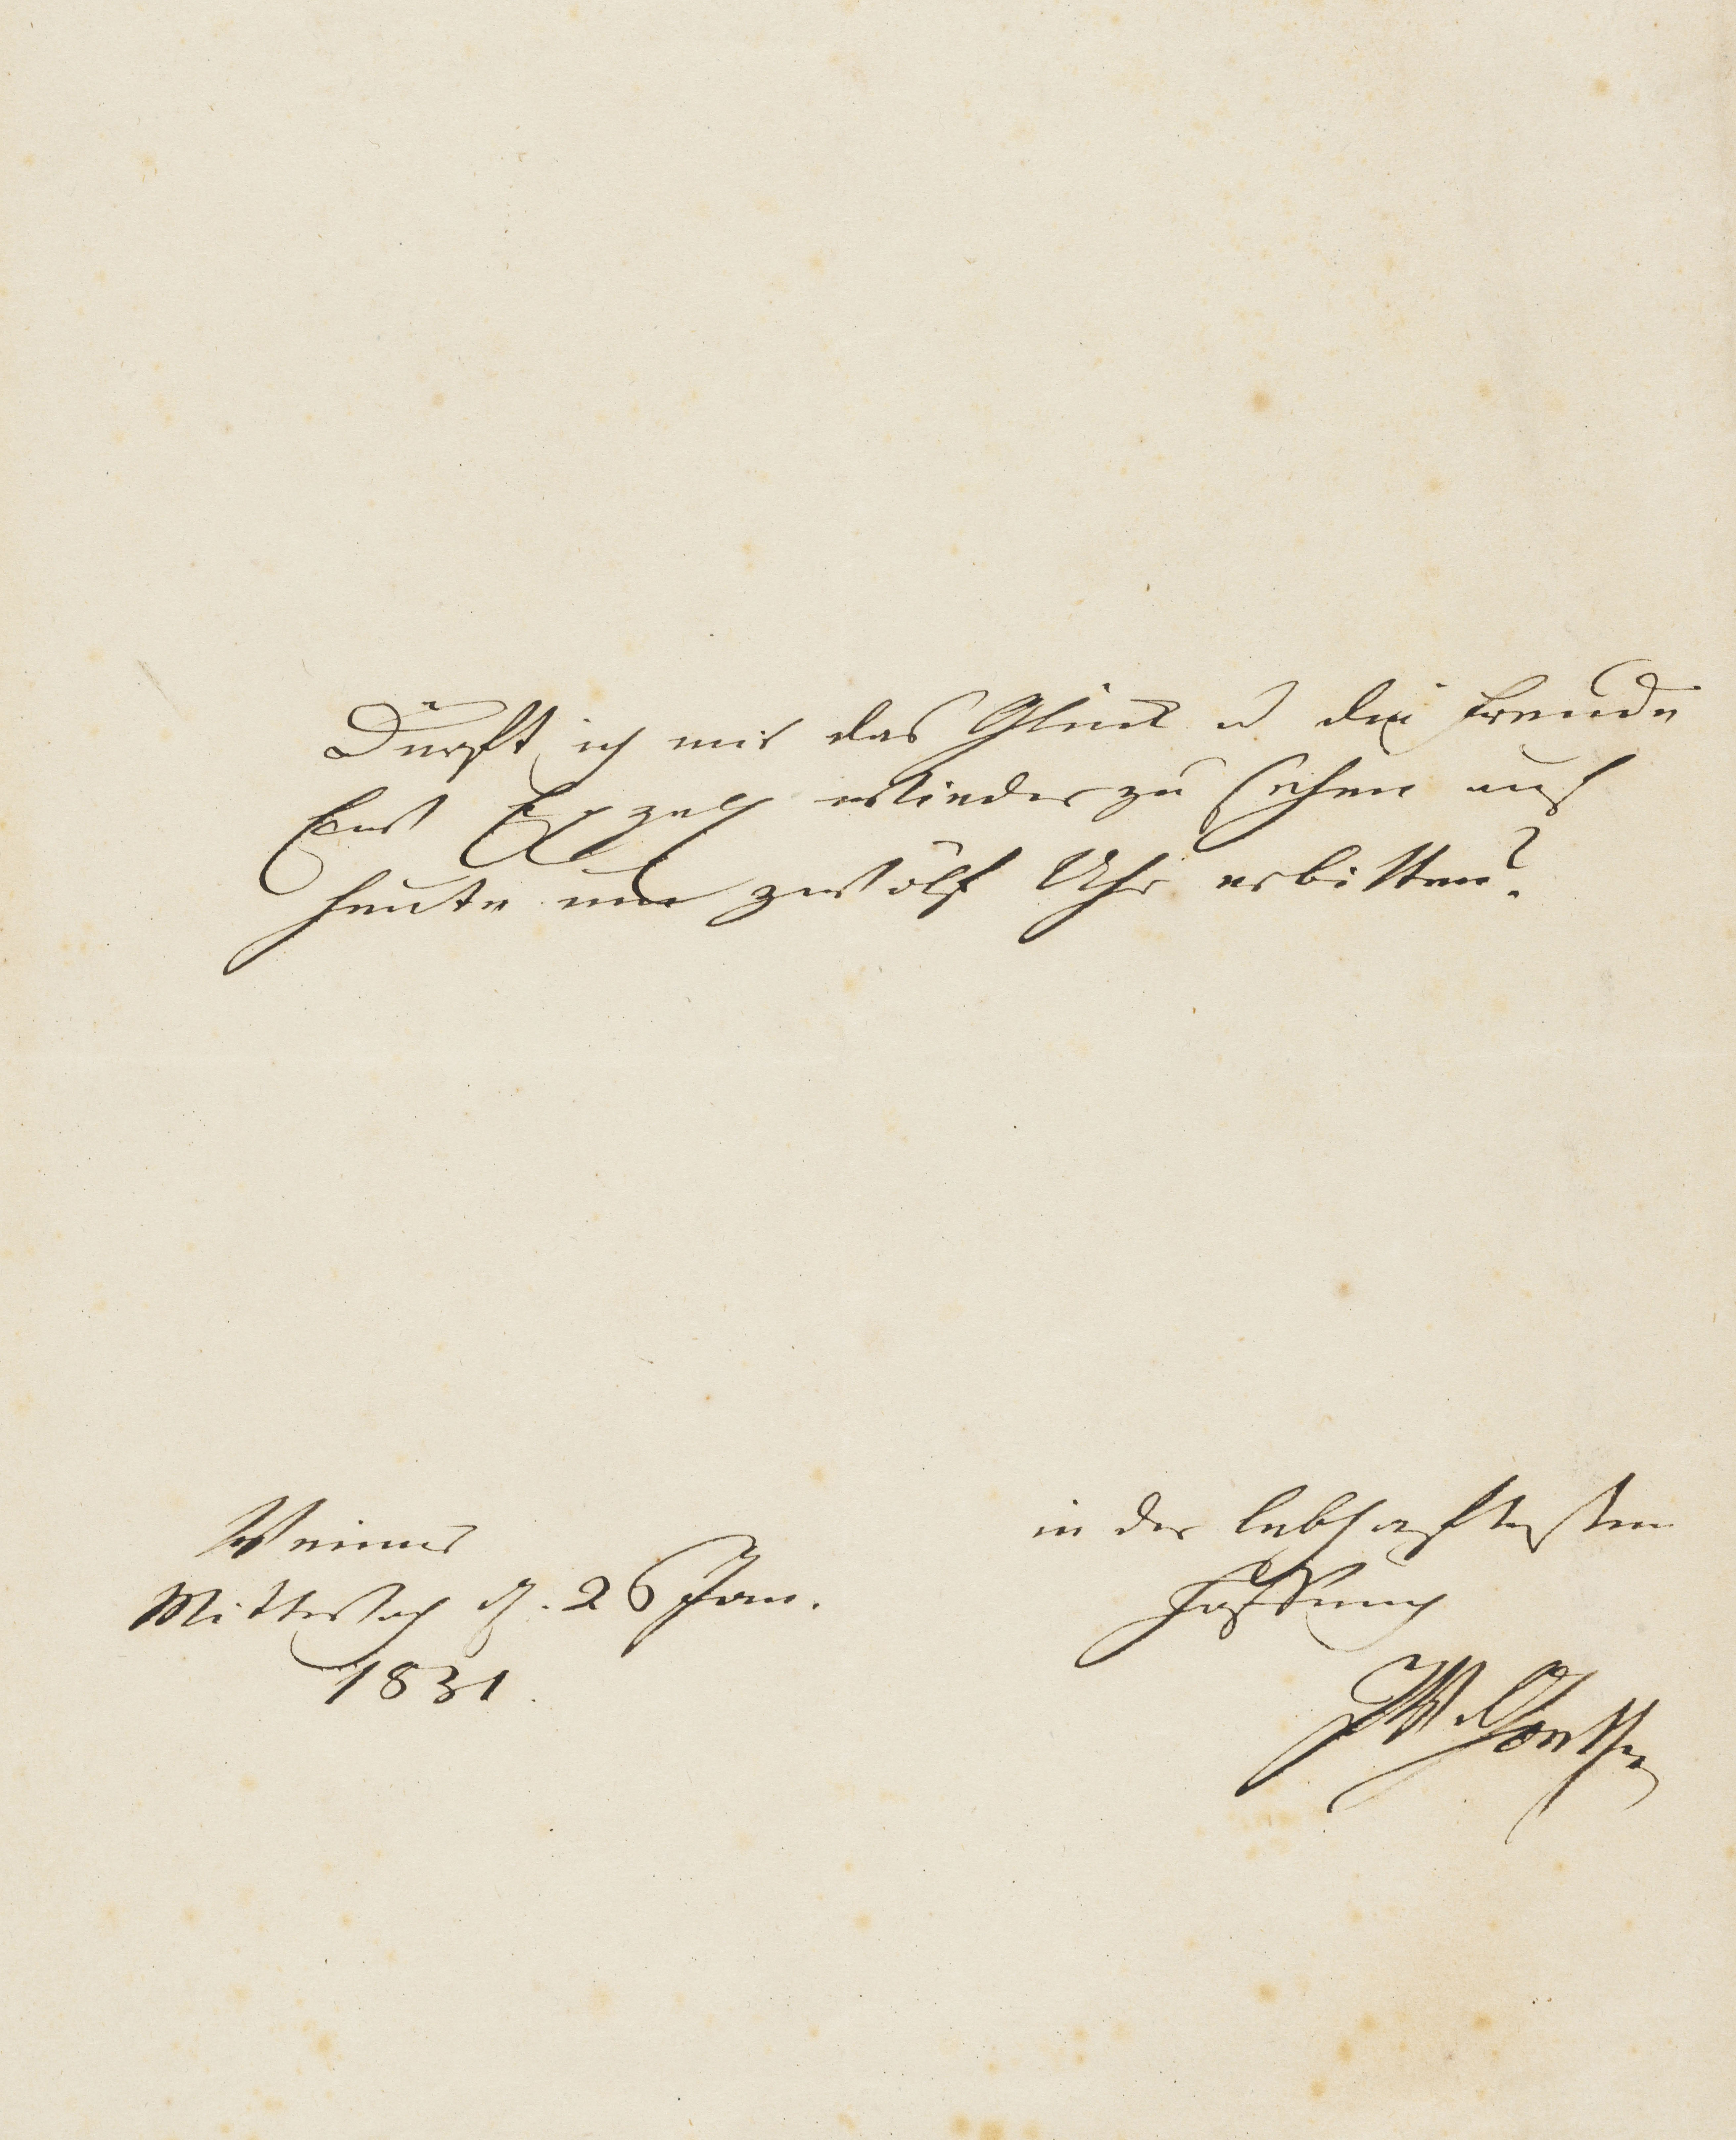 Dürft ich mir das Glück u die Freude
Ew Exzell wieder zu sehen auf
heute um zwölf Uhr erbitten?
in der lebhaftesten
Hoffnung
JWvGoethe
Weimar
Mittwoch d. 26 Jan.
1831.